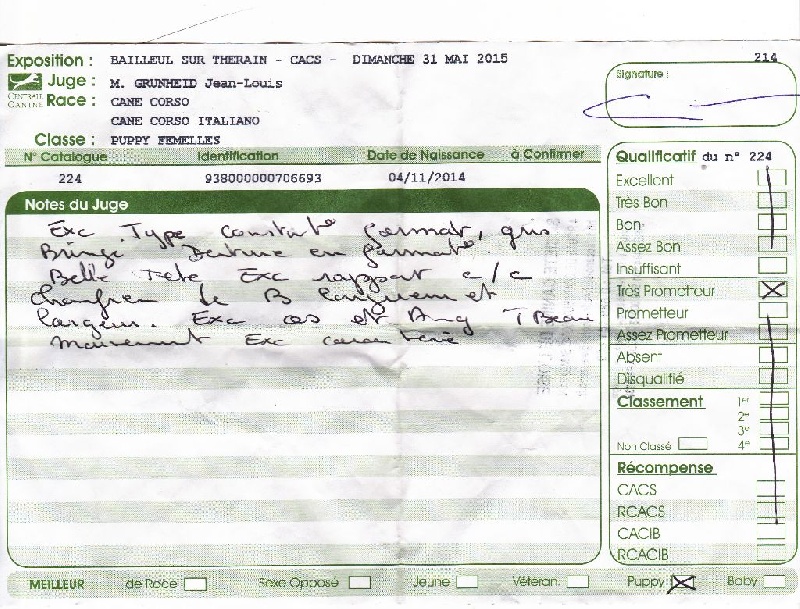 214
Exposition : BAILLEUL SUR THERAIN - CACS - DIMANCHE 31 MAI 2015
Juge : M. GRUNHEID Jean-Louis
CENTRALE CANINE
Race : CANE CORSO
CANE CORSO ITALIANO
Classe : PUPPY FEMELLES
Signature :
N° Catalogue Identification Date de Naissance à Confirmer
224 938000000706693 04/11/2014
Notes du Juge
Exc Type format, gris
Bringé Denture en
Belle Tete Exc rapport c/c
Chanfrein de B longueur et
largeur. Exc os et Ang T Beau
mouvement Exc caractère
Qualificatif du n° 224
Excellent
Très Bon
Bon
Assez Bon
Insuffisant
Très Prometteur
Prometteur
Assez Prometteur
Absent
Disqualifié
Classement 1er
2e
3e
Non Classé 4e
Récompense
CACS
RCACS
CACIB
RCACIB
MEILLEUR de Race Sexe Opposé Jeune Vétéran Puppy Baby